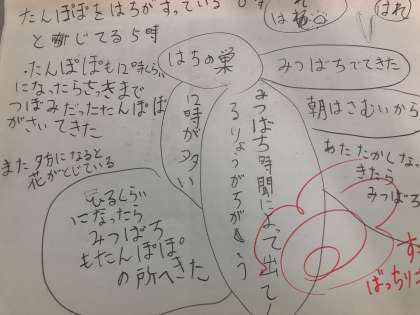 たんぽぽをはちがすっている
と閉じてる5時
・たんぽぽも12時くらい
になったらさっきまで
つぼみだったたんぽぽ
がさいてきた
また夕方になると
花がとじている
ひるぐらい
になったら
みつばち
もたんぽぽ
の所へきた
はちの巣
12時が多い
みつばち時間によって出てく
るりょうがちがう
はれ
みつばちでてきた
朝はさむいから
あたたかしな
きたら
みつばち
ばっちり